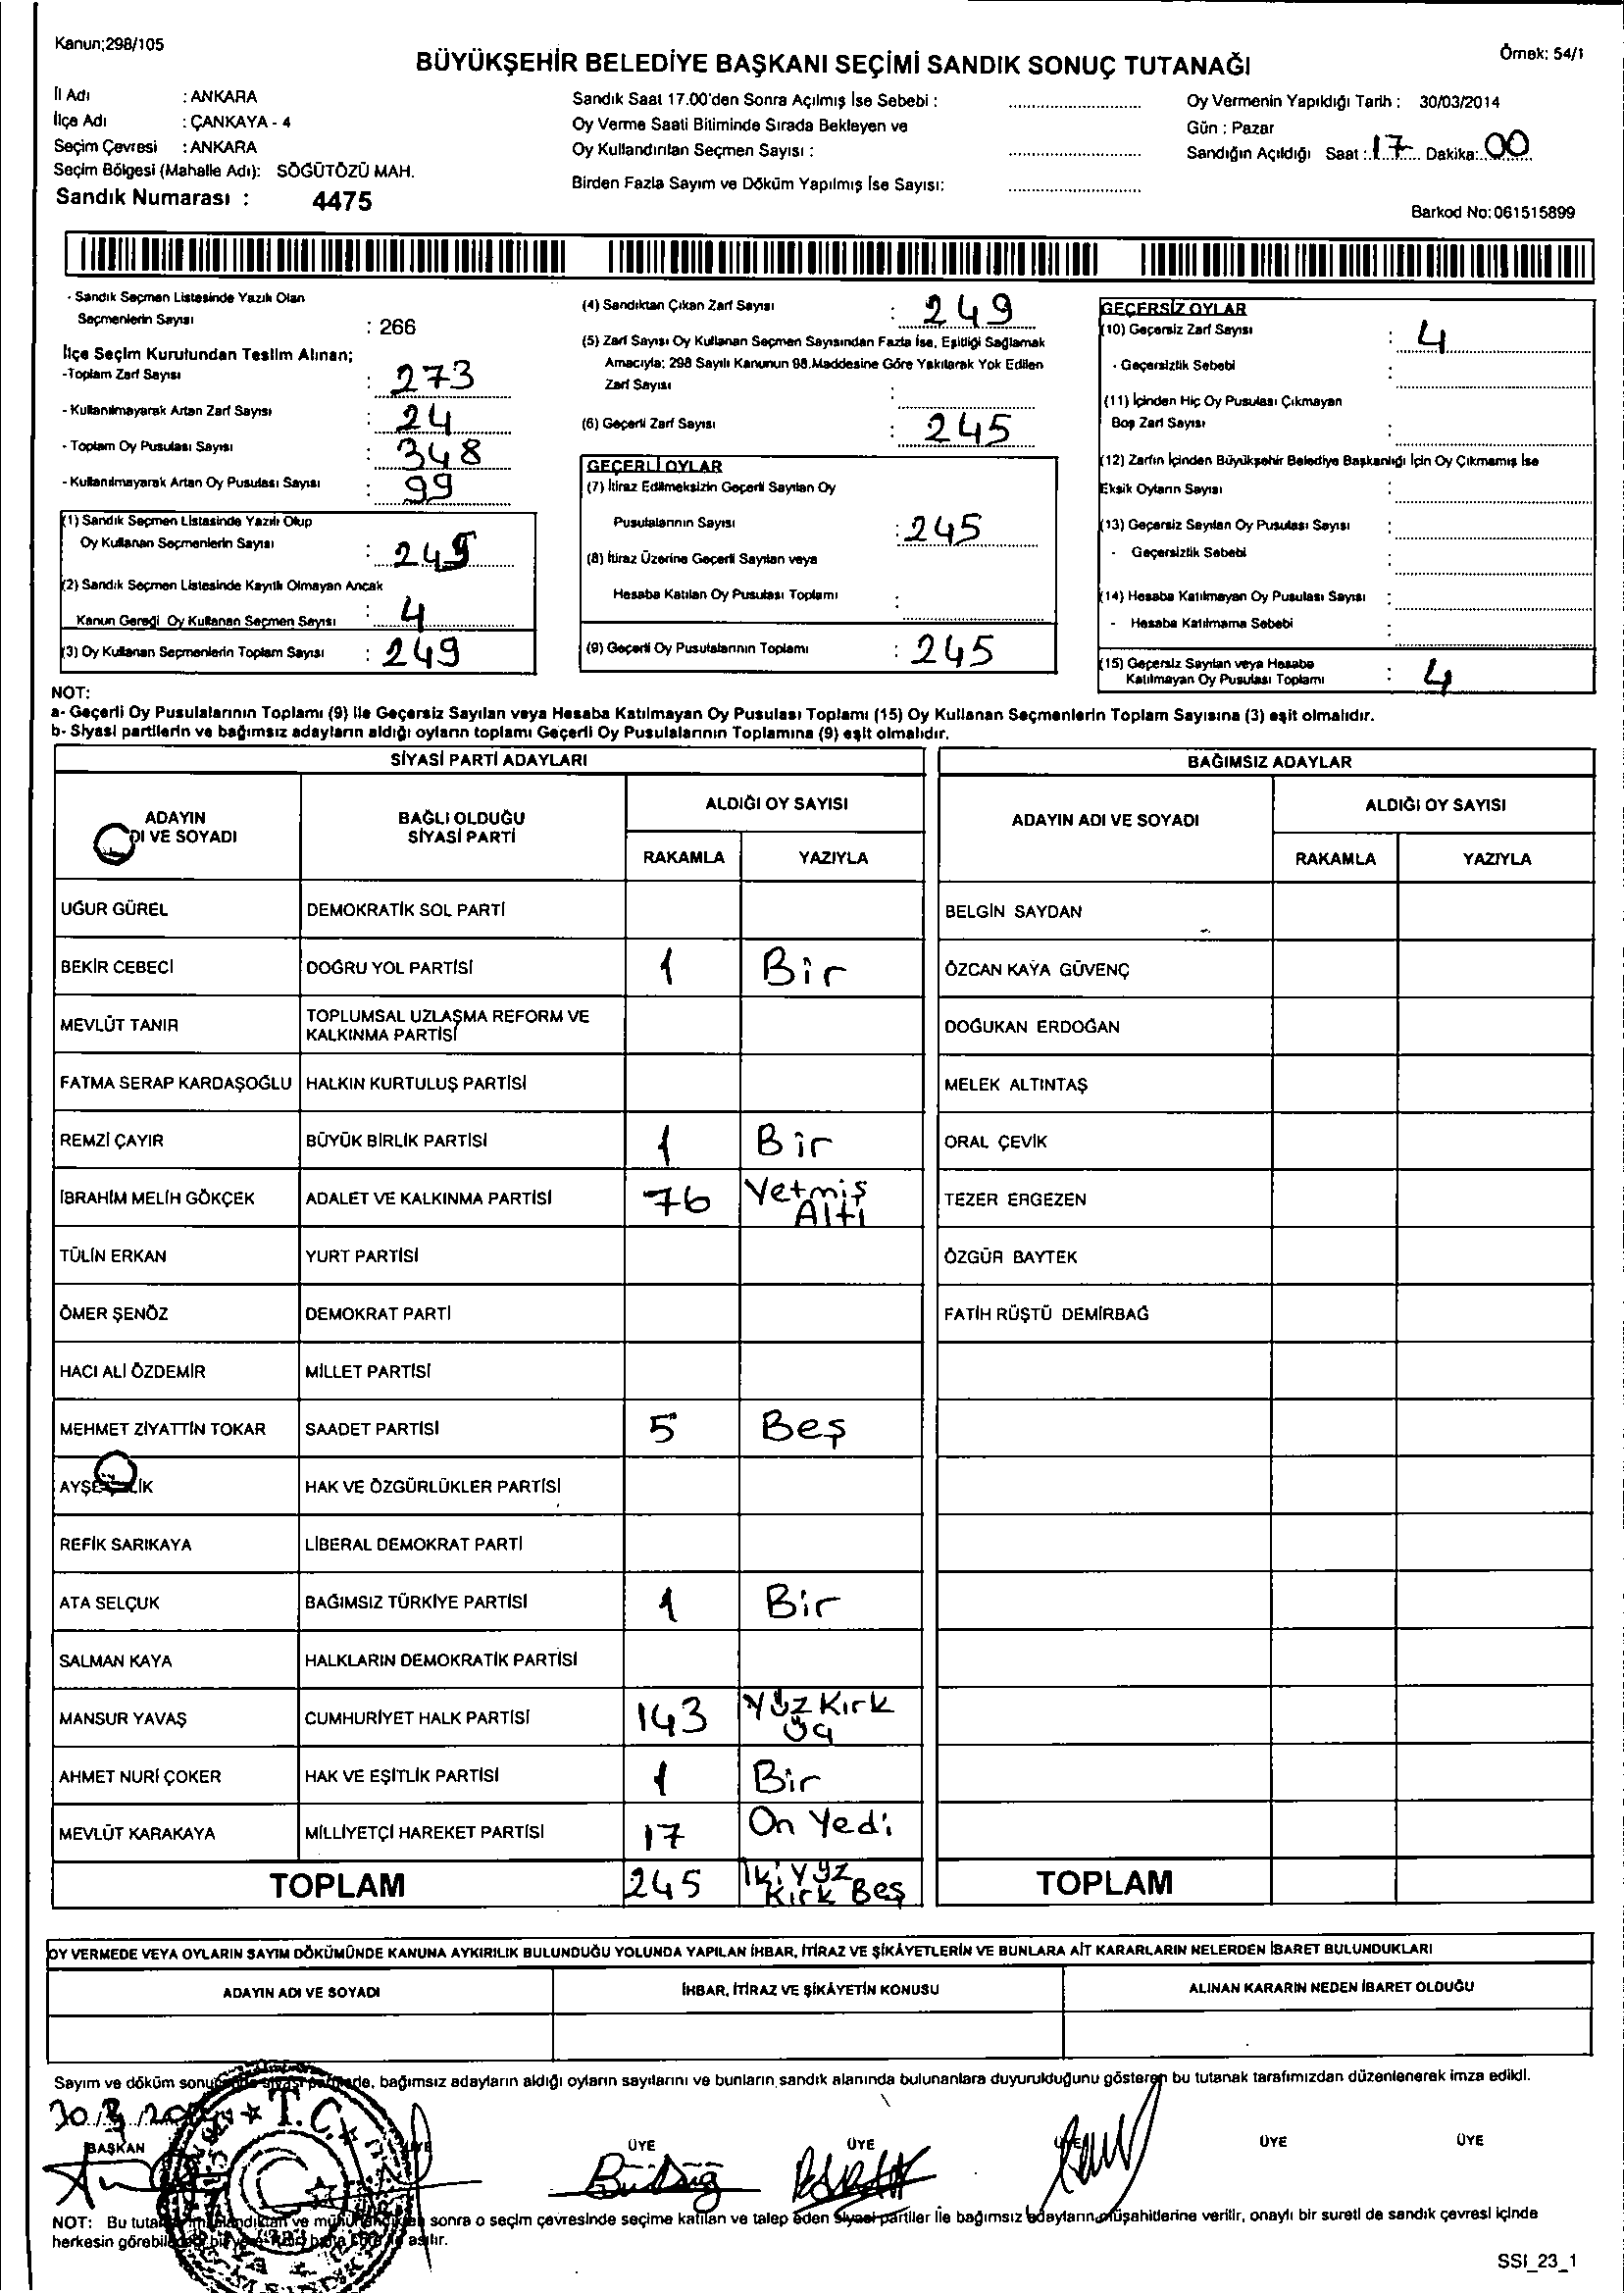 Kanun;298/105
Örnek: 54/1
BÜYÜKŞEHİR BELEDİYE BAŞKANI SEÇİMİ SANDIK SONUÇ TUTANAĞI
İl Adı : ANKARA
İlçe Adı : ÇANKAYA - 4
Seçim Çevresi : ANKARA
Seçim Bölgesi (Mahalle Adı): SÖĞÜTÖZÜ MAH.
Sandık Numarası : 4475
Sandık Saat 17.00'den Sonra Açılmış İse Sebebi :
Oy Verme Saati Bitiminde Sırada Bekleyen ve
Oy Kullandırılan Seçmen Sayısı :
Birden Fazla Sayım ve Döküm Yapılmış İse Sayısı:
Oy Vermenin Yapıldığı Tarih : 30/03/2014
Gün : Pazar
Sandığın Açıldığı Saat : 17 Dakika: 00
Barkod No:061515899
- Sandık Seçmen Listesinde Yazılı Olan
Seçmenlerin Sayısı : 266
İlçe Seçim Kurulundan Teslim Alınan;
-Toplam Zarf Sayısı : 273
- Kullanılmayarak Artan Zarf Sayısı : 24
- Toplam Oy Pusulası Sayısı : 348
- Kullanılmayarak Artan Oy Pusulası Sayısı : 99
(1) Sandık Seçmen Listesinde Yazılı Olup
Oy Kullanan Seçmenlerin Sayısı : 245
(2) Sandık Seçmen Listesinde Kayıtlı Olmayan Ancak
Kanun Gereği Oy Kullanan Seçmen Sayısı : 4
(3) Oy Kullanan Seçmenlerin Toplam Sayısı : 249
(4) Sandıktan Çıkan Zarf Sayısı : 249
(5) Zarf Sayısı Oy Kullanan Seçmen Sayısından Fazla İse, Eşitliği Sağlamak
Amacıyla; 298 Sayılı Kanunun 98.Maddesine Göre Yakılarak Yok Edilen
Zarf Sayısı :
(6) Geçerli Zarf Sayısı : 245
GEÇERLİ OYLAR
(7) İtiraz Edilmeksizin Geçerli Sayılan Oy
Pusulalarının Sayısı : 245
(8) İtiraz Üzerine Geçerli Sayılan veya
Hesaba Katılan Oy Pusulası Toplamı :
(9) Geçerli Oy Pusulalarının Toplamı : 245
GEÇERSİZ OYLAR
(10) Geçersiz Zarf Sayısı : 4
- Geçersizlik Sebebi :
(11) İçinden Hiç Oy Pusulası Çıkmayan
Boş Zarf Sayısı :
(12) Zarfın İçinden Büyükşehir Belediye Başkanlığı İçin Oy Çıkmamış İse
Eksik Oyların Sayısı :
(13) Geçersiz Sayılan Oy Pusulası Sayısı :
- Geçersizlik Sebebi :
(14) Hesaba Katılmayan Oy Pusulası Sayısı :
- Hesaba Katılmama Sebebi :
(15) Geçersiz Sayılan veya Hesaba
Katılmayan Oy Pusulası Toplamı : 4
NOT:
a- Geçerli Oy Pusulalarının Toplamı (9) ile Geçersiz Sayılan veya Hesaba Katılmayan Oy Pusulası Toplamı (15) Oy Kullanan Seçmenlerin Toplam Sayısına (3) eşit olmalıdır.
b- Siyasi partilerin ve bağımsız adayların aldığı oyların toplamı Geçerli Oy Pusulalarının Toplamına (9) eşit olmalıdır.
SİYASİ PARTİ ADAYLARI
ADAYIN
DI VE SOYADI
BAĞLI OLDUĞU
SİYASİ PARTİ
ALDIĞI OY SAYISI
RAKAMLA YAZIYLA
UĞUR GÜREL DEMOKRATİK SOL PARTİ
BEKİR CEBECİ DOĞRU YOL PARTİSİ 1 Bir
MEVLÜT TANIR TOPLUMSAL UZLAŞMA REFORM VE
KALKINMA PARTİSİ
FATMA SERAP KARDAŞOĞLU HALKIN KURTULUŞ PARTİSİ
REMZİ ÇAYIR BÜYÜK BİRLİK PARTİSİ 1 Bir
İBRAHİM MELİH GÖKÇEK ADALET VE KALKINMA PARTİSİ 76 Yetmiş
Altı
TÜLİN ERKAN YURT PARTİSİ
ÖMER ŞENÖZ DEMOKRAT PARTİ
HACI ALİ ÖZDEMİR MİLLET PARTİSİ
MEHMET ZİYATTİN TOKAR SAADET PARTİSİ 5 Beş
AYŞE HAK VE ÖZGÜRLÜKLER PARTİSİ
REFİK SARIKAYA LİBERAL DEMOKRAT PARTİ
ATA SELÇUK BAĞIMSIZ TÜRKİYE PARTİSİ 1 Bir
SALMAN KAYA HALKLARIN DEMOKRATİK PARTİSİ
MANSUR YAVAŞ CUMHURİYET HALK PARTİSİ 143 Yüz Kırk
Üç
AHMET NURİ ÇOKER HAK VE EŞİTLİK PARTİSİ 1 Bir
MEVLÜT KARAKAYA MİLLİYETÇİ HAREKET PARTİSİ 17 On Yedi
TOPLAM 245 İki Yüz
Kırk Beş
BAĞIMSIZ ADAYLAR
ADAYIN ADI VE SOYADI
ALDIĞI OY SAYISI
RAKAMLA YAZIYLA
BELGİN SAYDAN
ÖZCAN KAYA GÜVENÇ
DOĞUKAN ERDOĞAN
MELEK ALTINTAŞ
ORAL ÇEVİK
TEZER ERGEZEN
ÖZGÜR BAYTEK
FATİH RÜŞTÜ DEMİRBAĞ
TOPLAM
OY VERMEDE VEYA OYLARIN SAYIM DÖKÜMÜNDE KANUNA AYKIRILIK BULUNDUĞU YOLUNDA YAPILAN İHBAR, İTİRAZ VE ŞİKAYETLERİN VE BUNLARA AİT KARARLARIN NELERDEN İBARET BULUNDUKLARI
ADAYIN ADI VE SOYADI İHBAR, İTİRAZ VE ŞİKAYETİN KONUSU ALINAN KARARIN NEDEN İBARET OLDUĞU
Sayım ve döküm bağımsız adayların aldığı oyların sayılarını ve bunların sandık alanında bulunanlara duyurulduğunu gösteren bu tutanak tarafımızdan düzenlenerek imza edildi.
BAŞKAN ÜYE ÜYE ÜYE ÜYE ÜYE
T.C.
NOT: Bu sonra o seçim çevresinde seçime katılan ve talep eden siyasi partiler ile bağımsız adayların müşahitlerine verilir, onaylı bir sureti de sandık çevresi içinde
herkesin asılır.
SSI_23_1